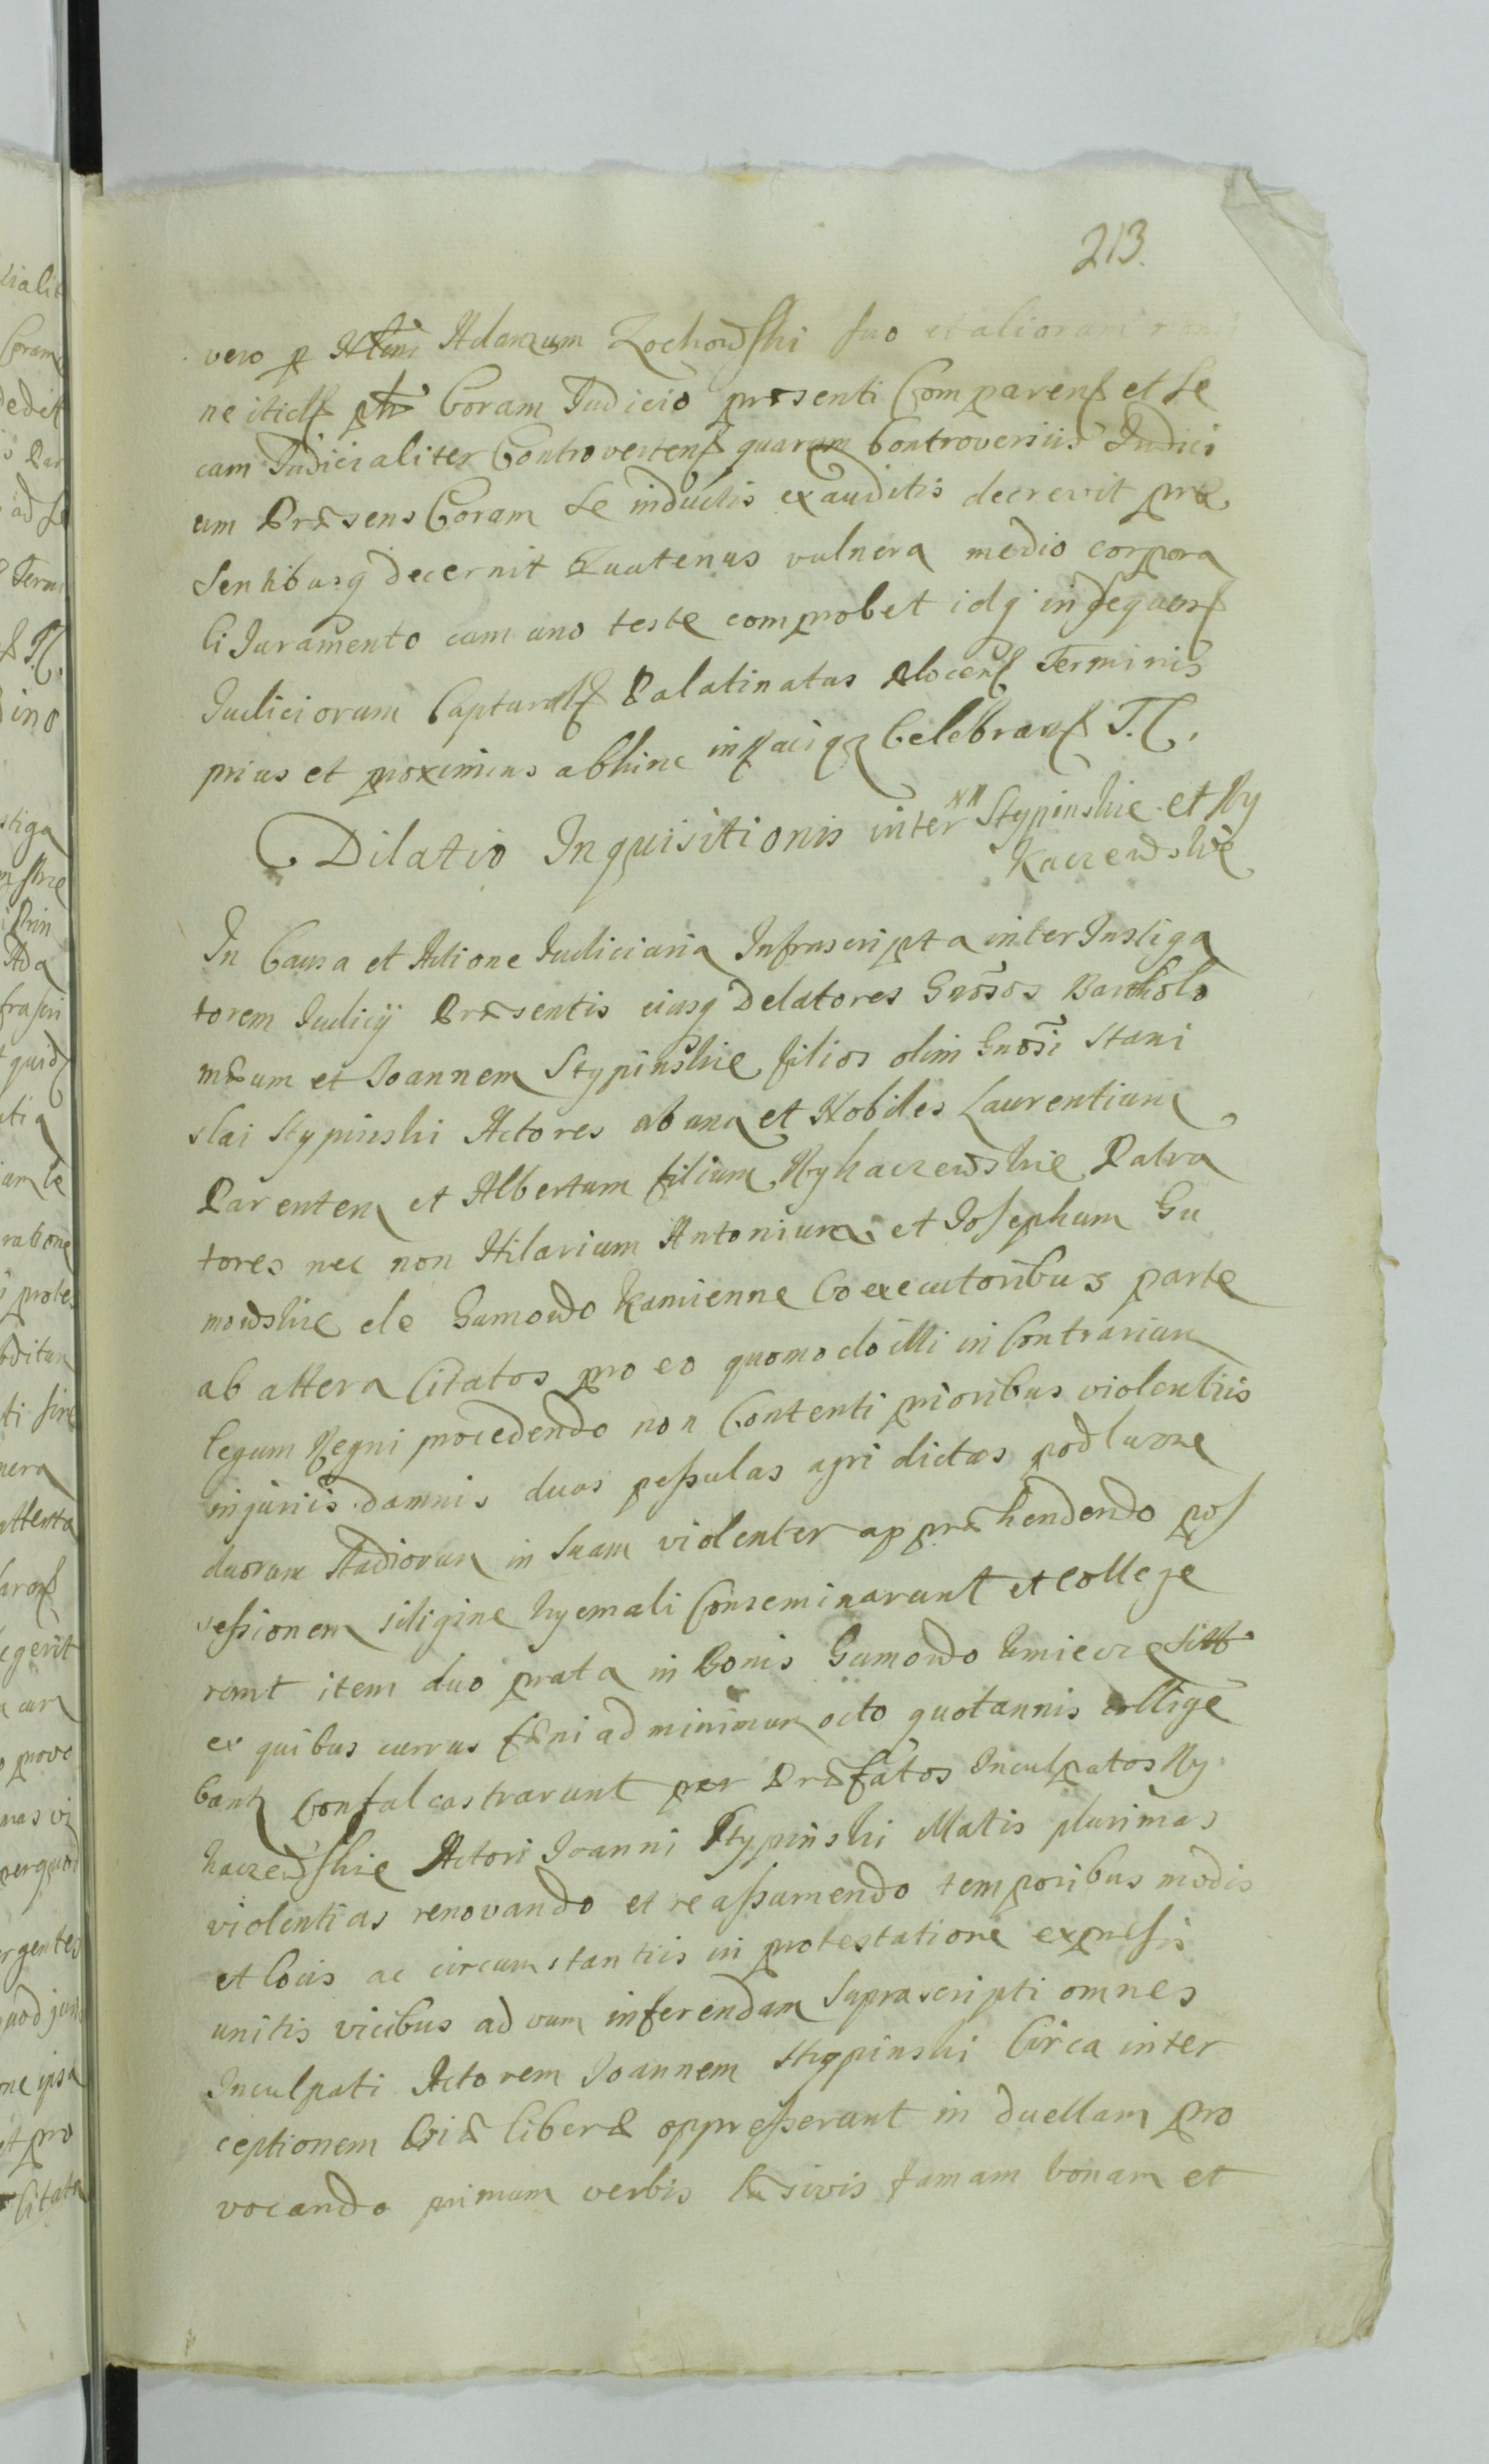 213.
vero p Adamum Zochowski suo et aliorum nomi
ne Coram Judicio præsenti Comparen et Se
cum Judicialiter Controverten quarum Controversiis Judici
um Præsens Coram Se inductis exauditis decrevit præ
sentibusq decernit Quatenus vulnera medio corpora
li Juramento cum uno teste comprobet idq in sequen
Judiciorum Captural Palatinatus Plocen Terminis
prius et proximius abhinc Celebran T. C.
Dilatio Inquisitionis inter NN Stypinskie et Ry
kaczewskie
In Causa et Actione Judiciaria Infrascripta inter Instiga
torem Judicij Præsentis eiusq Delatores Gnosos Bartholo
mæum et Joannem Stypinskie filios olim Gnosi Stani
slai Stypinski Actores ab una et Nobiles Laurentium
Parentem et Albertum filium Rykaczewskie Patra
tores nec non Hilarium Antonium et Josephum Gu
mowskie de Gumowo Kamienne Coexecutoribus parte
ab altera Citatos pro eo quomodo illi in Contrarium
legum Regni procedendo non Contenti prioribus violentiis
injuriis damnis duas pessulas agri dictas podluzne
duorum stadiorum in suam violenter appræhendendo pos
sessionem siligine hyemali Conseminarunt et college
runt item duo prata in bonis Gumowo sitt
ex quibus currus fæni ad minimum octo quotannis collige
bant Confalcastrarunt per Præfatos Inculpatos Ry
kaczewskie Actori Joanni Stypinski illatis plurimas
violentias renovando et reassumendo temporibus modis
et locis ac circumstantiis in protestatione expressis
unitis vicibus ad vum inferendam Suprascripti omnes
Inculpati Actorem Joannem Stypinski Circa inter
ceptionem viæ liberæ oppresserunt in duellam pro
vocando primum verbis læsivis famam bonam et